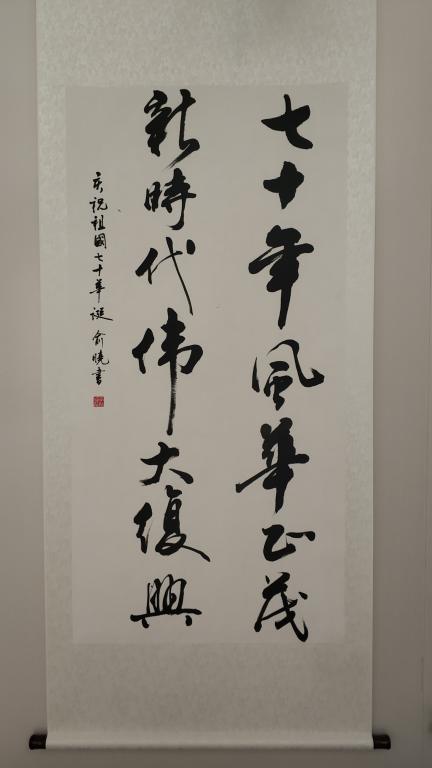 七十年風華正茂
新時代伟大復興
庆祝祖國七十華诞 俞曉書